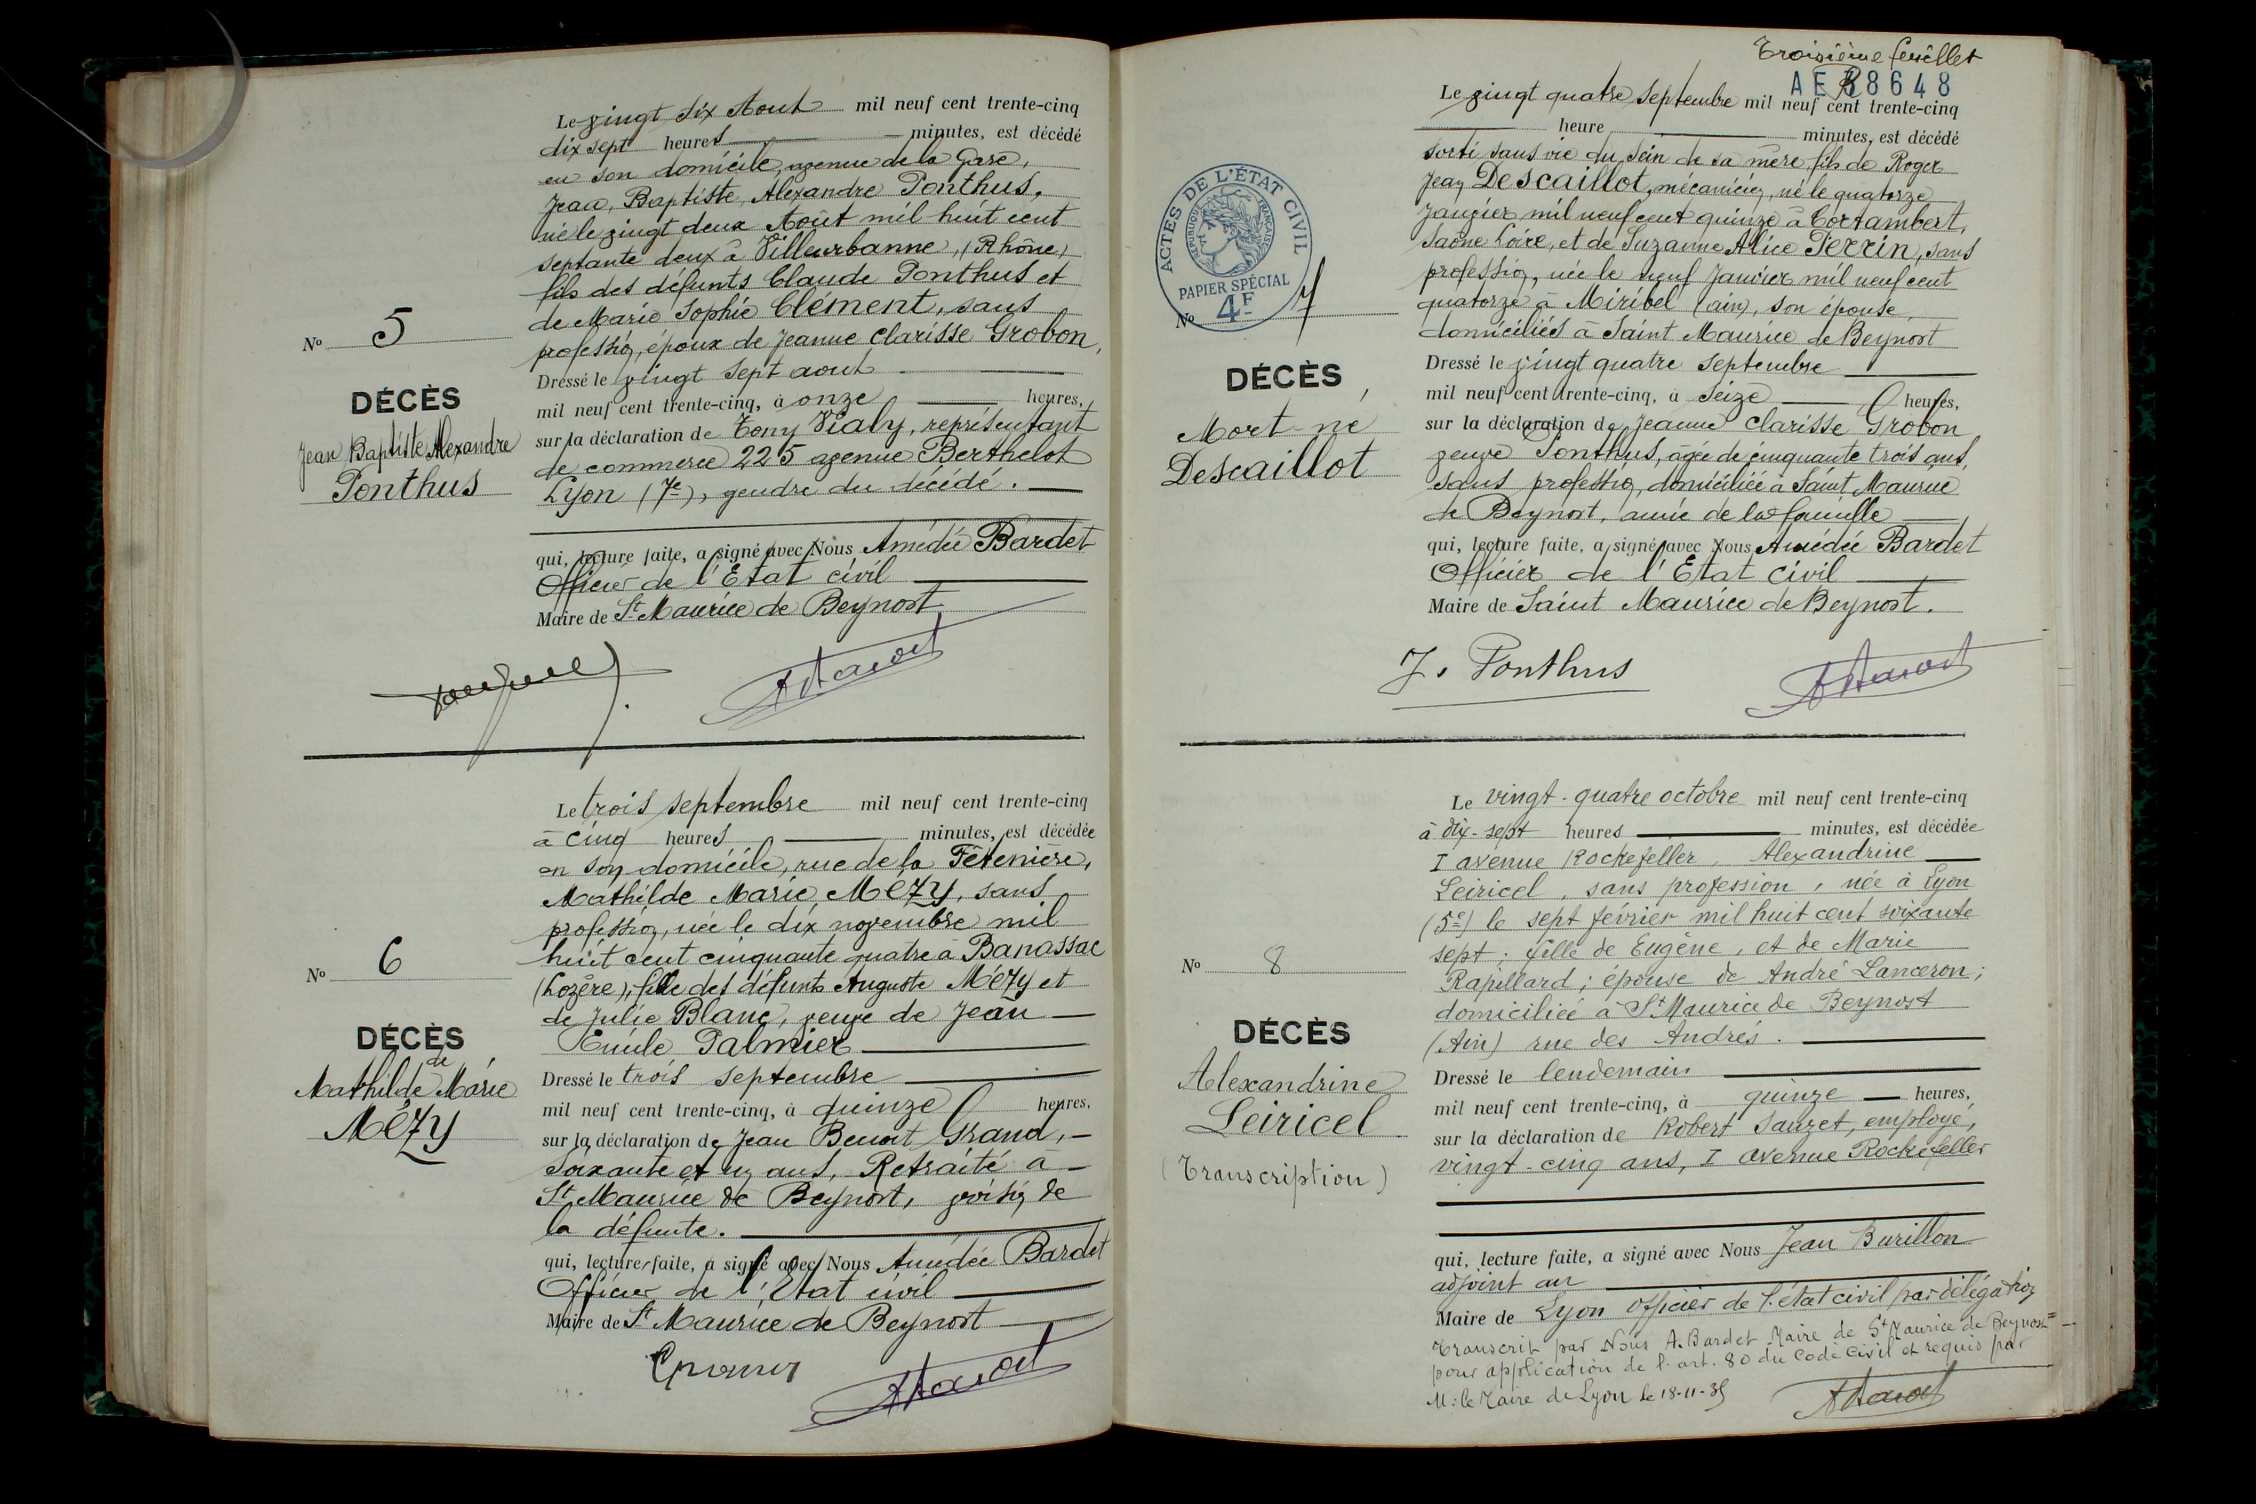 Le vingt six Aout mil neuf cent trente-cinq
dix sept heures minutes, est décédé
en son domicile, avenue de la Gare,
Jean, Baptiste, Alexandre Ponthus,
né le vingt deux Août mil huit cent
septante deux à Villeurbanne, (Rhône)
fils des défunts Claude Ponthus et
de Marie Sophie Clément, sans
profession, époux de Jeanne Clarisse Grobon,
Dressé le vingt sept aout
mil neuf cent trente-cinq, à onze heures,
sur la déclaration de Tony Vialy, représentant
de commerce 225 avenue Berthelot
Lyon (7e), gendre du décédé.
qui, lecture faite, a signé avec Nous Amédée Bardet
Officier de l'Etat civil
Maire de St Maurice de Beynost
No 5
DÉCÈS
Jean Baptiste Alexandre
Ponthus
Le trois septembre mil neuf cent trente-cinq
à cinq heures minutes, est décédée
en son domicile, rue de la Fêtenière,
Mathilde Marie, MÉZY, sans
profession, née le dix novembre mil
huit cent cinquante quatre à Banassac
(Lozère), fille des défunts Auguste Mézy et
de Julie Blanc, veuve de Jean
Emile Palmier
Dressé le trois septembre
mil neuf cent trente-cinq, à quinze heures,
sur la déclaration de Jean Benoit Grand,
Soixante et un ans, Retraité à
St Maurice de Beynost, voisin de
la défunte.
qui, lecture faite, a signé avec Nous Amédée Bardet
Officier de l'Etat civil
Maire de St Maurice de Beynost
No 6
DÉCÈS
de
Mathilde Marie
MÉZY
Troisième feuillet
AE 38648
Le vingt quatre septembre mil neuf cent trente-cinq
heure minutes, est décédé
sorti sans vie du sein de sa mère, fils de Roger
Jean Descaillot, mécanicien, né le quatorze
Janvier mil neuf cent quinze à Cortambert,
Saône Loire, et de Suzanne Alice Perrin, sans
profession, née le neuf Janvier mil neuf cent
quatorze à Miribel (ain), son épouse,
domiciliés à Saint Maurice de Beynost
Dressé le vingt quatre septembre
mil neuf cent trente-cinq, à seize heures,
sur la déclaration de Jeanne Clarisse Grobon
veuve Ponthus, âgée de cinquante trois ans,
sans profession, domiciliée à Saint Maurice
de Beynost, amie de la famille
qui, lecture faite, a signé avec Nous Amédée Bardet
Officier de l'Etat civil
Maire de Saint Maurice de Beynost.
J. Ponthus
ACTES DE L'ÉTAT CIVIL
RÉPUBLIQUE FRANÇAISE
PAPIER SPÉCIAL
4F
No 7
DÉCÈS
Mort-né
Descaillot
Le vingt-quatre octobre mil neuf cent trente-cinq
à dix-sept heures minutes, est décédée
I avenue Rockefeller, Alexandrine
Leiricel, sans profession, née à Lyon
(5e) le sept février mil huit cent soixante
sept; fille de Eugène, et de Marie
Rapillard; épouse de André Lanceron;
domiciliée à St Maurice de Beynost
(Ain) rue des Andrés.
Dressé le lendemain
mil neuf cent trente-cinq, à quinze heures,
sur la déclaration de Robert Sauzet, employé,
vingt-cinq ans, I avenue Rockefeller
qui, lecture faite, a signé avec Nous Jean Burillon
adjoint au
Maire de Lyon officier de l'état civil par délégation
Transcrit par Nous A. Bardet Maire de St Maurice de Beynost
pour application de l'art. 80 du Code Civil et requis par
M: le Maire de Lyon le 18-11-35
No 8
DÉCÈS
Alexandrine
Leiricel
(Transcription)